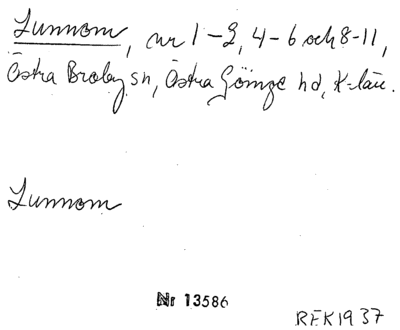 Lunnom, nr 1-2, 4-6 och 8-11,
Östra Broby sn, Östra Göinge hd, K-län.
Lunnom
Nr 13586
REK 1937